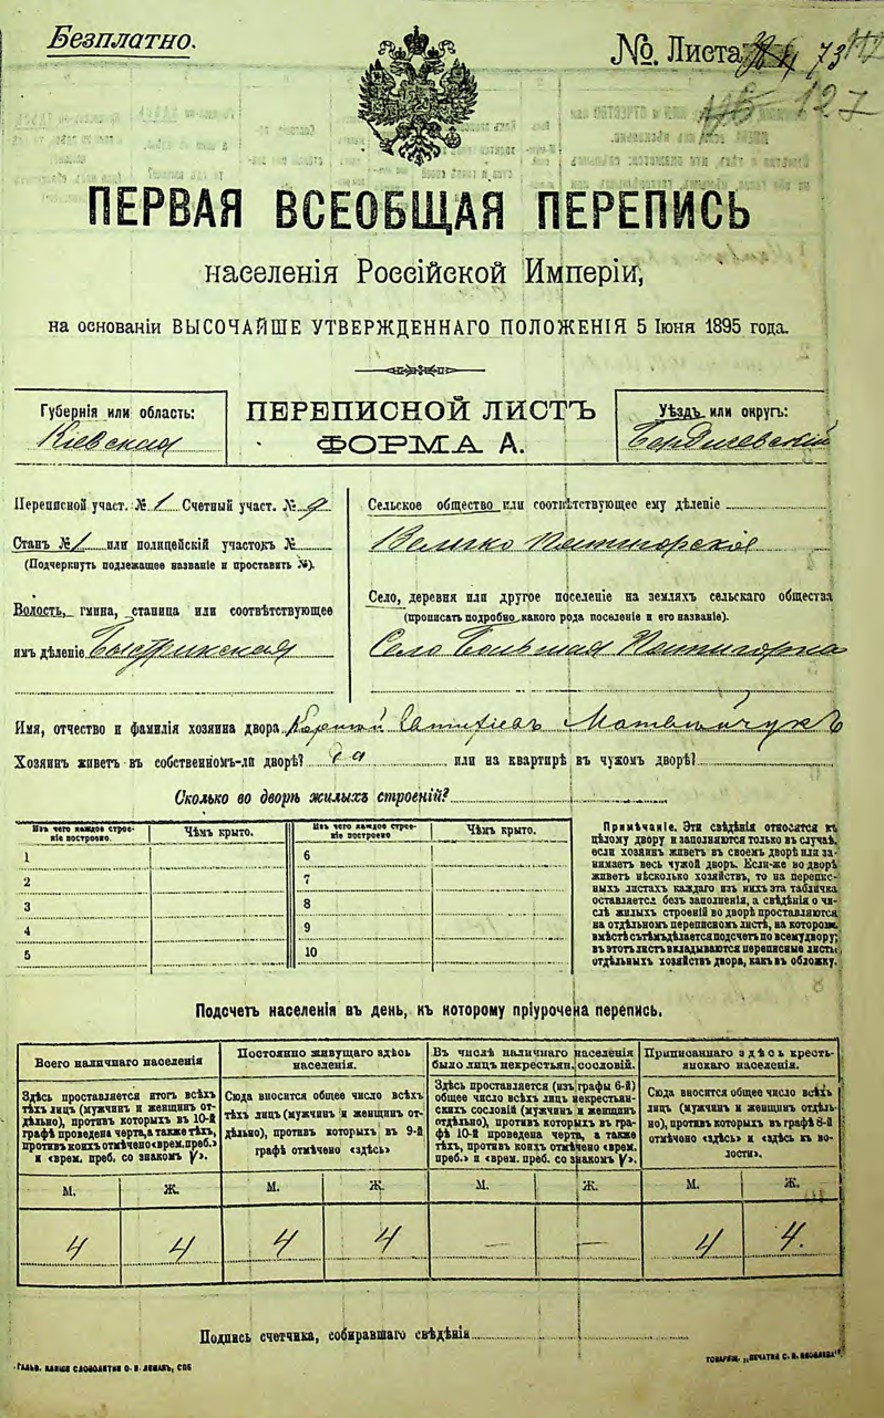 Безплатно.
№. Листа 73
127
ПЕРВАЯ ВСЕОБЩАЯ ПЕРЕПИСЬ
населенія Россійской Имперіи,
на основаніи ВЫСОЧАЙШЕ УТВЕРЖДЕННАГО ПОЛОЖЕНІЯ 5 Іюня 1895 года.
Губернія или область:
Кіевская
ПЕРЕПИСНОЙ ЛИСТЪ
ФОРМА А.
Уѣздъ или округъ:
Бердичевскій
Переписной участ. № 1 Счетный участ. № 9
Станъ № 1 или полицейскій участокъ №
(Подчеркнуть подлежащее названіе и проставить №).
Волость, гмина, станица или соотвѣтствующее
имъ дѣленіе Быстрикская
Сельское общество или соотвѣтствующее ему дѣленіе
Велико Пятигорское
Село, деревня или другое поселеніе на земляхъ сельскаго общества
(прописать подробно, какого рода поселеніе и его названіе).
Село Большая Пятигорка
Имя, отчество и фамилія хозяина двора Матвійчукъ
Хозяинъ живетъ въ собственномъ-ли дворѣ? Да или на квартирѣ въ чужомъ дворѣ?
Сколько во дворѣ жилыхъ строеній?
Изъ чего каждое строе-
ніе построено.
Чѣмъ крыто.
Изъ чего каждое строе-
ніе построено
Чѣмъ крыто.
1
2
3
4
5
6
7
8
9
10
Примѣчаніе. Эти свѣдѣнія относятся къ
цѣлому двору и заполняются только въ случаѣ,
если хозяинъ живетъ въ своемъ дворѣ или за-
нимаетъ весь чужой дворъ. Если-же во дворѣ
живетъ нѣсколько хозяйствъ, то на перепис-
ныхъ листахъ каждаго изъ нихъ эта табличка
оставляется безъ заполненія, а свѣдѣнія о чи-
слѣ жилыхъ строеній во дворѣ проставляются
на отдѣльномъ переписномъ листѣ, на которомъ
вмѣстѣ съ тѣмъ дѣлается подсчетъ по всему двору;
въ этотъ листъ вкладываются переписные листы
отдѣльныхъ хозяйствъ двора, какъ въ обложку.
Подсчетъ населенія въ день, къ которому пріурочена перепись.
Всего наличнаго населенія
Здѣсь проставляется итогъ всѣхъ
тѣхъ лицъ (мужчинъ и женщинъ от-
дѣльно), противъ которыхъ въ 10-й
графѣ проведена черта, а также тѣхъ,
противъ коихъ отмѣчено «врем. преб.»
и «врем. преб. со знакомъ V».
Постоянно живущаго здѣсь
населенія.
Сюда вносится общее число всѣхъ
тѣхъ лицъ (мужчинъ и женщинъ от-
дѣльно), противъ которыхъ въ 9-й
графѣ отмѣчено «здѣсь»
Въ числѣ наличнаго населенія
было лицъ некрестьян. сословій.
Здѣсь проставляется (изъ графы 6-й)
общее число всѣхъ лицъ некрестьян-
скихъ сословій (мужчинъ и женщинъ
отдѣльно), противъ которыхъ въ гра-
фѣ 10-й проведена черта, а также
тѣхъ, противъ коихъ отмѣчено «врем.
преб.» и «врем. преб. со знакомъ V».
Приписаннаго здѣсь кресть-
янскаго населенія.
Сюда вносится общее число всѣхъ
лицъ (мужчинъ и женщинъ отдѣль-
но), противъ которыхъ въ графѣ 8-й
отмѣчено «здѣсь» и «здѣсь къ во-
лости».
М. Ж. М. Ж. М. Ж. М. Ж.
4 4 4 4 – – 4 4.
Подпись счетчика, собиравшаго свѣдѣнія
ТОВАРИЩ. „ПЕЧАТНЯ С. П. ЯКОВЛЕВА".